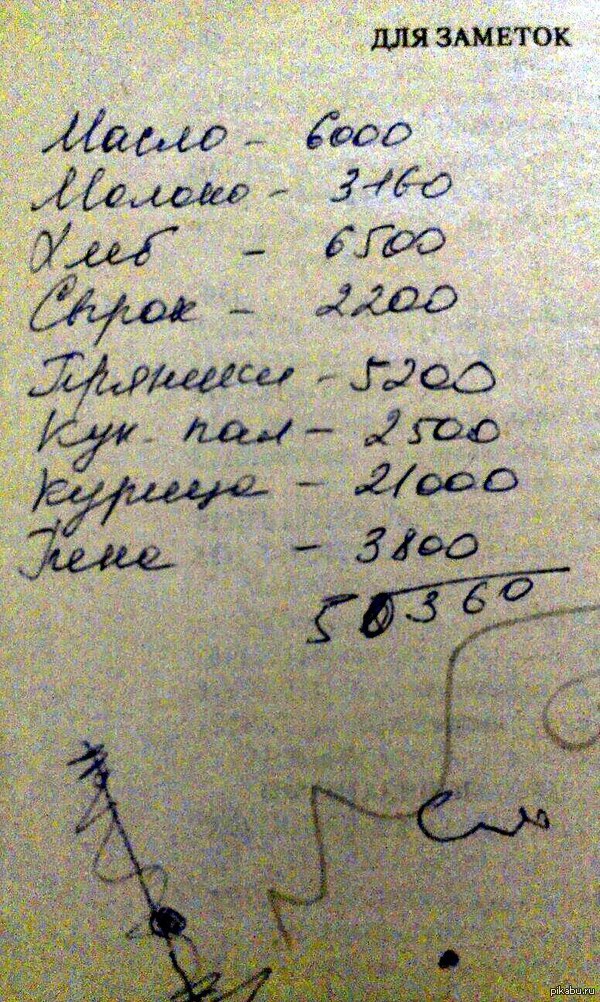 ДЛЯ ЗАМЕТОК
Масло - 6000
Молоко - 3160
Хлеб - 6500
Сырок - 2200
Пряники - 5200
Кук. пал - 2500
Курица - 21000
Пена - 3800
50360
pikabu.ru